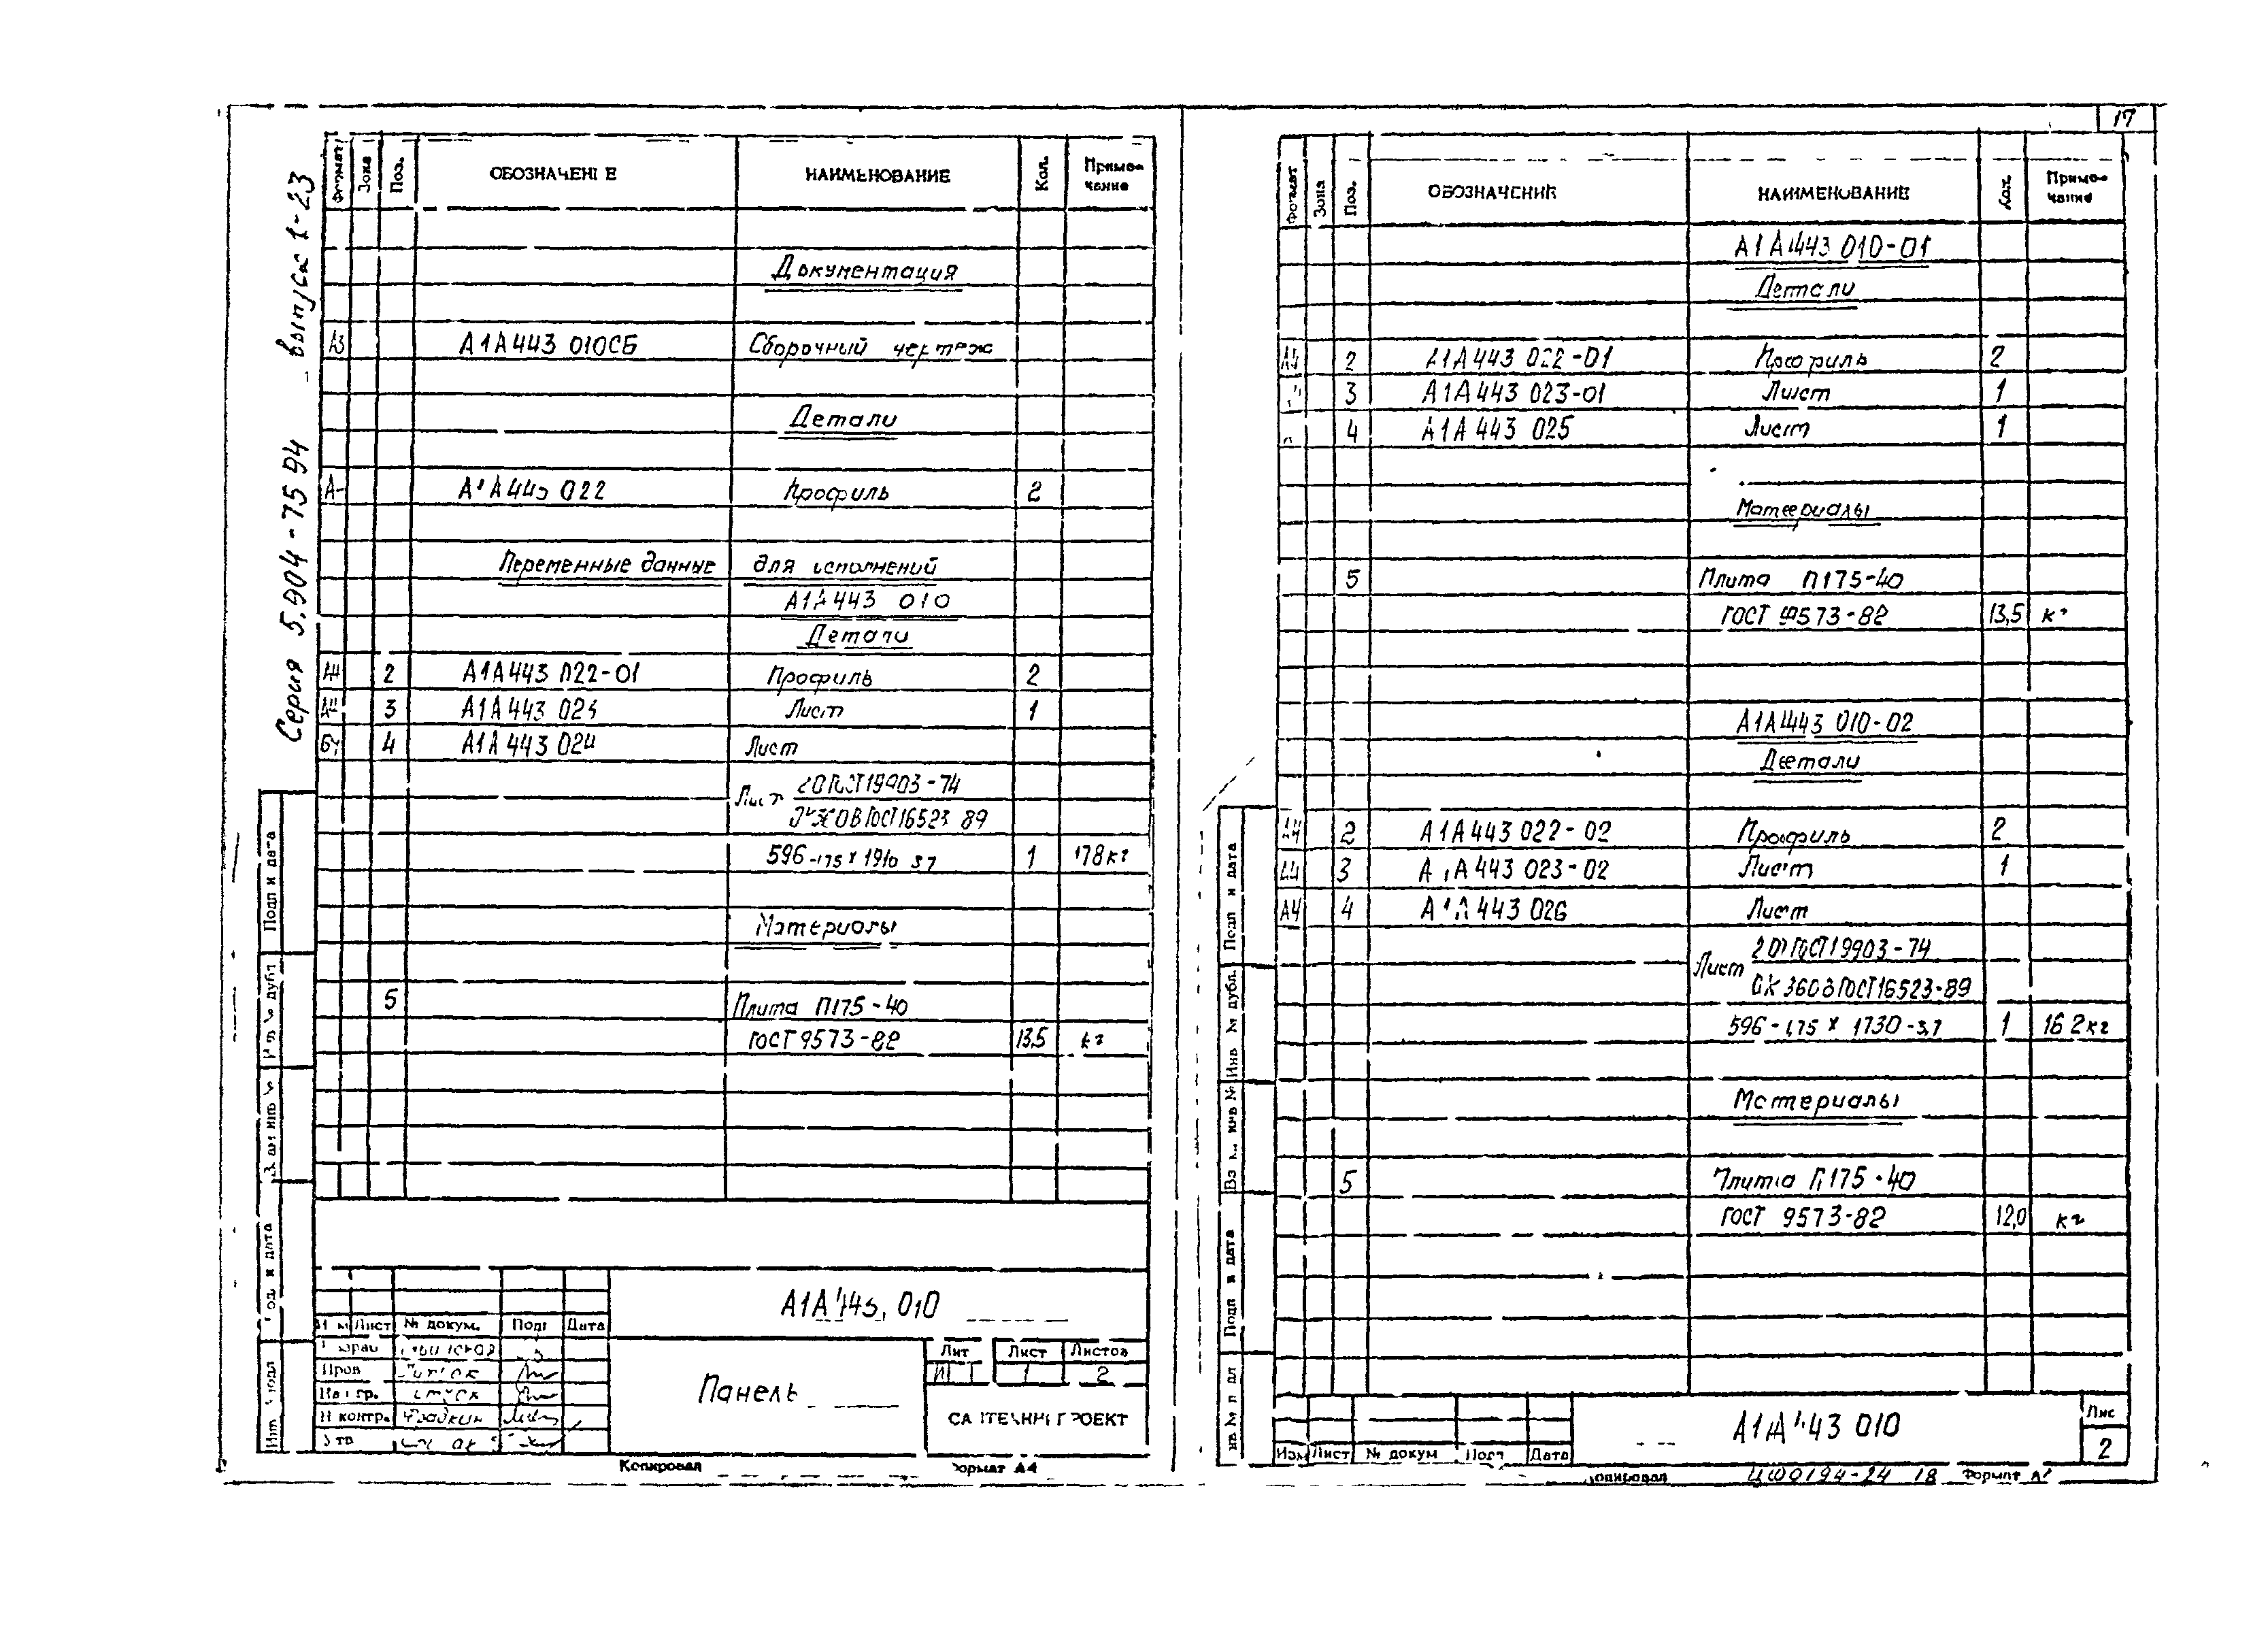 17
Серия 5.904-75 94 выпуск 1-23
Формат Зона Поз. ОБОЗНАЧЕНИЕ НАИМЕНОВАНИЕ Кол. Приме-
чание
Документация
А3 А1А443 010СБ Сборочный чертеж
Детали
А1А443 022 Профиль 2
Переменные данные для исполнений
А1А443 010
Детали
А4 2 А1А443 022-01 Профиль 2
А4 3 А1А443 023 Лист 1
БЧ 4 А1А443 024 Лист
Лист 2 0 ГОСТ 19903-74
ГОСТ 16523 89
596 -1,75 х 1910 3 7 1 178 кг
Материалы
5 Плита П175-40
ГОСТ 9573-82 13,5 кг
Подп и дата
Инв № дубл
Взам инв №
Подп и дата
Инв № подл
А1А443, 010
Изм Лист № докум. Подп Дата
Разраб
Пров
Нач гр.
Н контр. Фрадкин
Утв
Панель
Лит Лист Листов
И 1 2
САНТЕХНИИПРОЕКТ
Копировал Формат А4
Формат Зона Поз. ОБОЗНАЧЕНИЕ НАИМЕНОВАНИЕ Кол. Приме-
чание
А1А443 010-01
Детали
А4 2 А1А443 022-01 Профиль 2
3 А1А443 023-01 Лист 1
4 А1А443 025 Лист 1
Материалы
5 Плита П175-40
ГОСТ 9573-82 13,5 кг
А1А443 010-02
Детали
А4 2 А1А443 022-02 Профиль 2
А4 3 А1А443 023-02 Лист 1
А4 4 А1А443 026 Лист
Лист 2 0 ГОСТ 19903-74
ОК 360В ГОСТ 16523-89
596-1,75 х 1730-3,7 1 16 2 кг
Материалы
5 Плита П175-40
ГОСТ 9573-82 12,0 кг
Подп и дата
Инв № дубл.
Подп и дата
Изм Лист № докум Подп Дата
А1А443 010
Лис
2
Копировал ЦИ00194-24 18 Формат А4